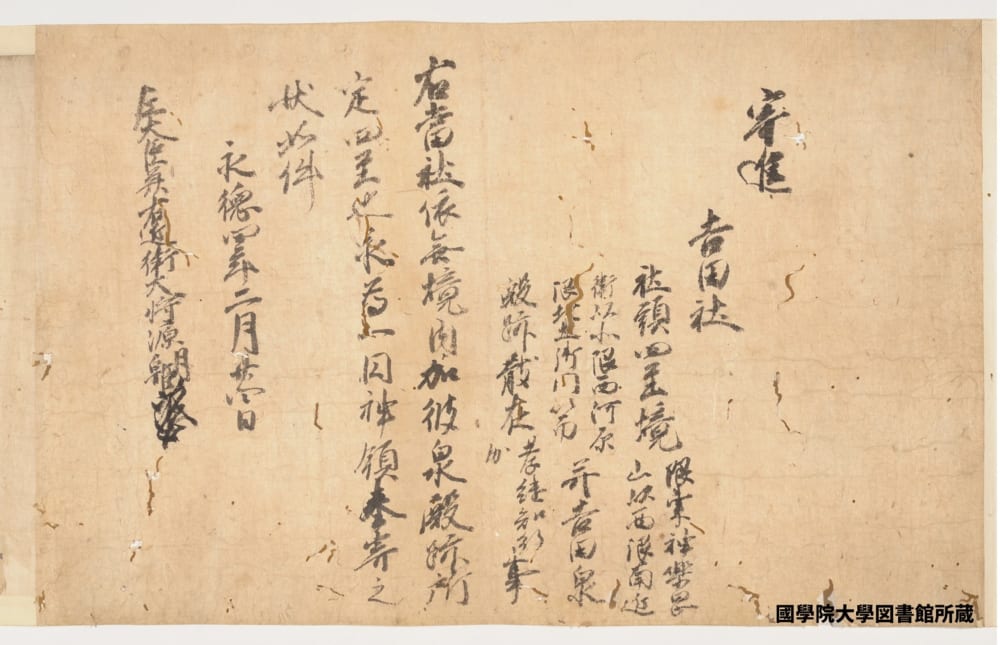 寄進
吉田社
社頭四至境 限東神楽岡
山以西限南近
衛以北限西河原
限北土御門以南 并吉田泉
殿跡散在 孝継知行
分 事
右當社依無境内加彼泉殿跡所
定四至也永為一円神領奉寄之
状如件
永徳四年二月廿四日
従一位兼右近衛大将源朝臣
國學院大學図書館所蔵